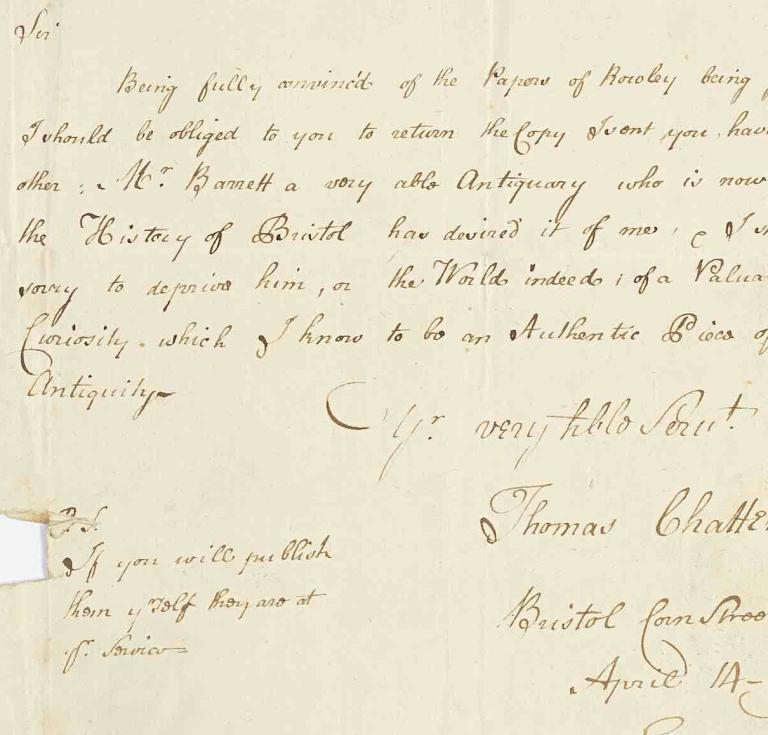 Sir
Being fully convinc'd of the Papers of Rowley being
I should be obliged to you to return the Copy I sent you, hav
other; Mr. Barrett a very able Antiquary who is now
the History of Bristol has desired it of me, & I s
sorry to deprive him, or the World indeed; of a Valua
Curiosity. which I know to be an Authentic Piece of
Antiquity
Yr. very hble Servt.
Thomas Chatte
P.S.
If you will publish
them yrself they are at
yr. Service
Bristol Corn Stree
April 14